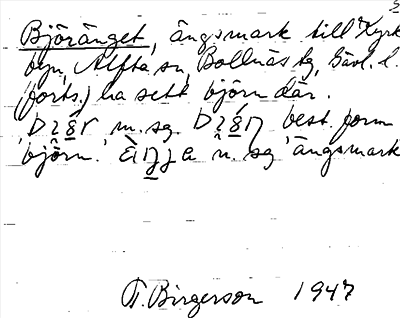 2
Björänget, ängsmark till Kyrk
byn, Alfta sn, Bollnäs tg, Gävl. l.
(forts.) ha sett björn där.
m. sg. best. form
'björn.' n. sg 'ängsmark
T. Birgerson 1947